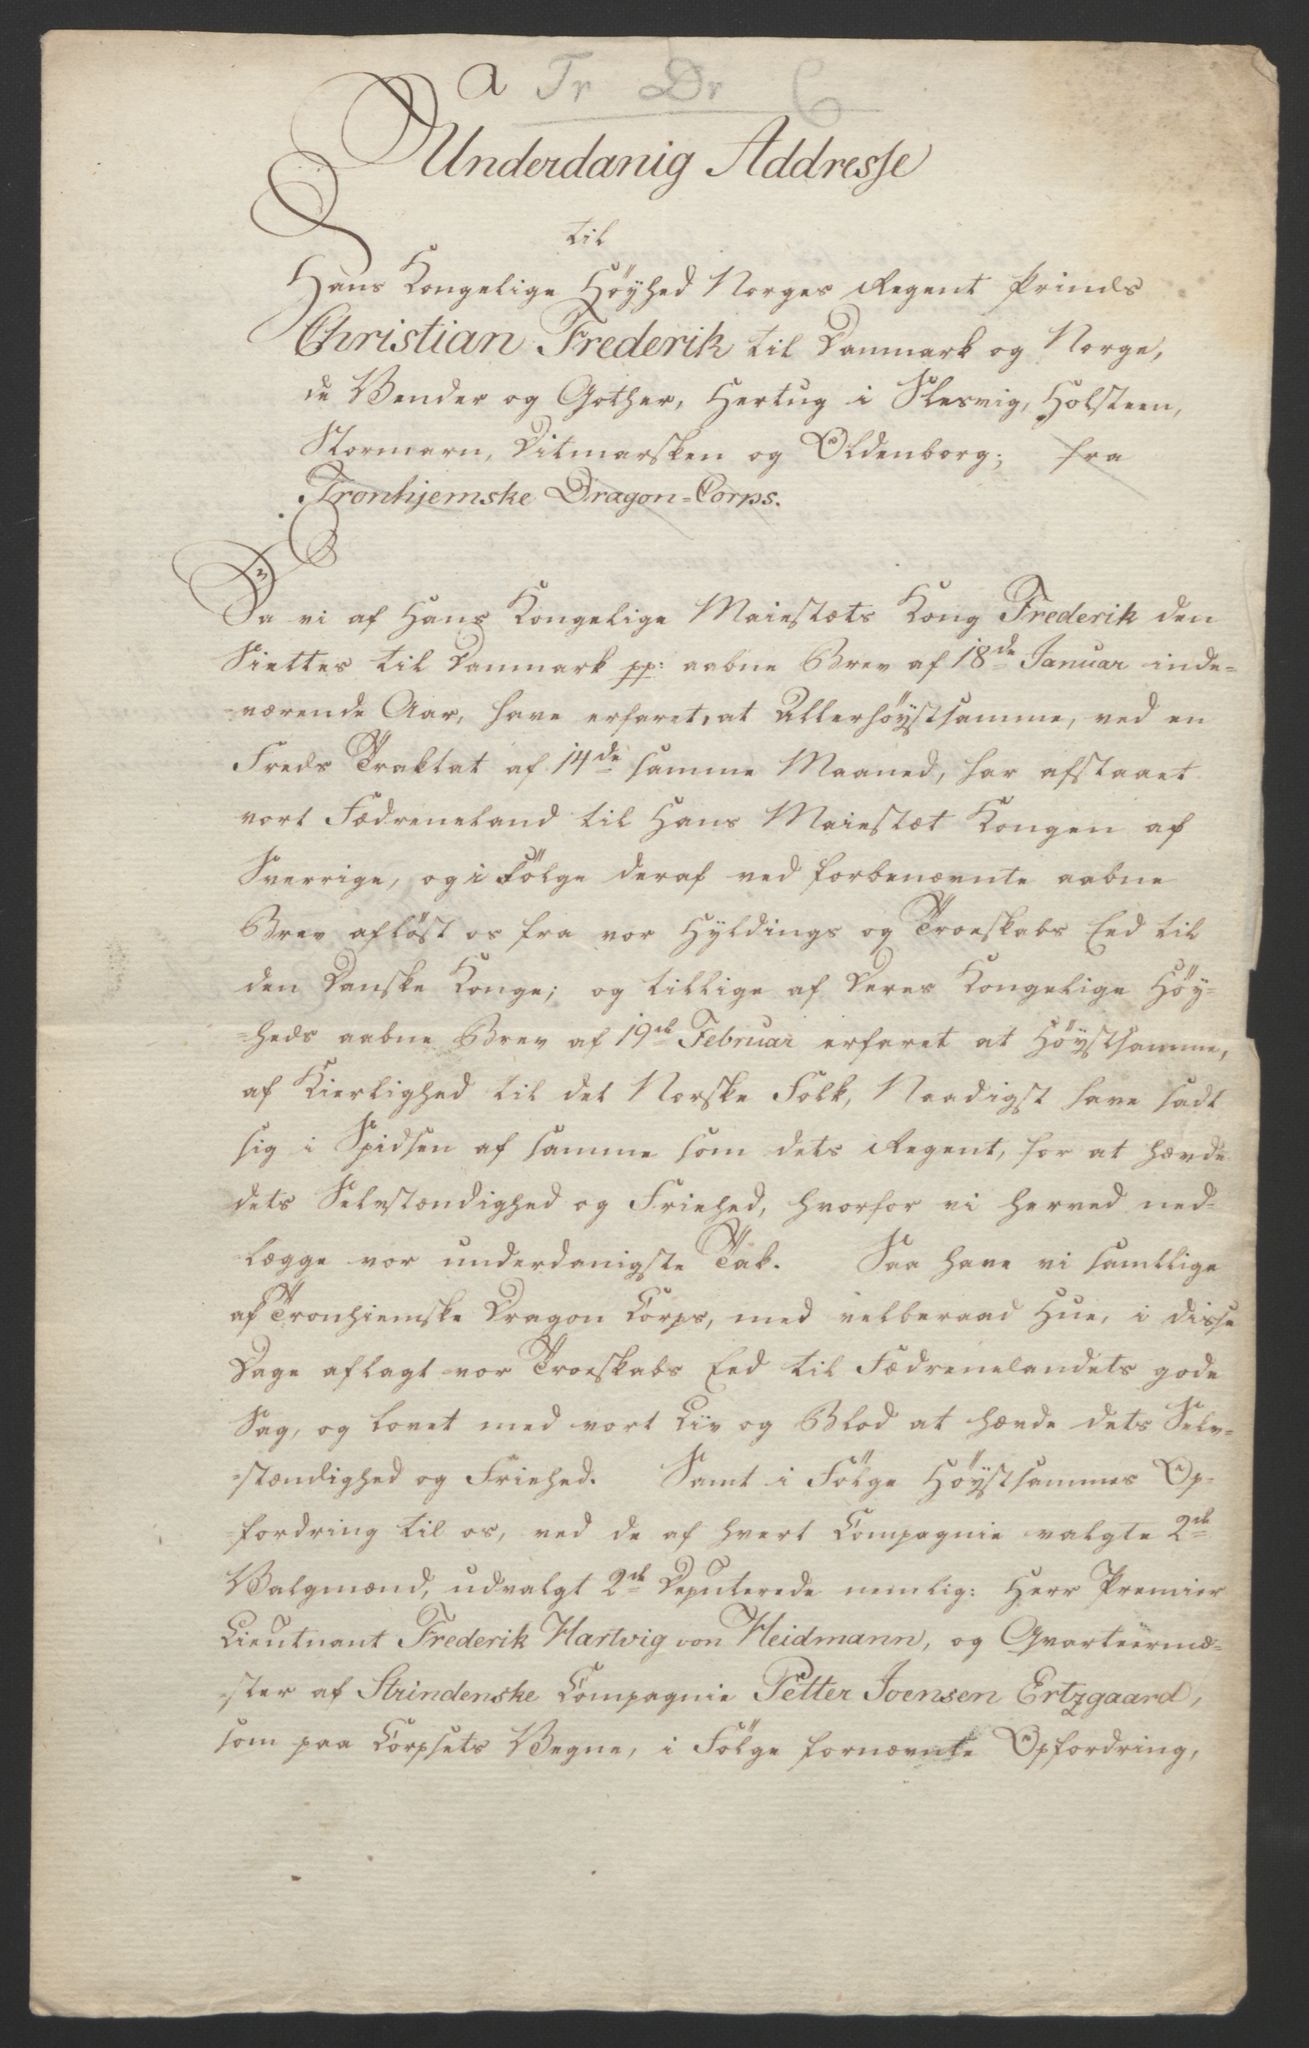 a Tr Dr C
Underdanig Addresse
til
Hans Kongelige Höyhed Norges Regent Prinds
Christian Frederik til Danmark og Norge,
de Vender og Gother, Hertug i Slesvig, Holsteen,
Stormarn, Ditmarsken og Oldenborg; fra
Tronhjemske Dragon=Corps.
Da vi af Hans Kongelige Maiestæts Kong Frederik den
Siettes til Danmark pp: aabne Brev af 18de Januar inde-
værende Aar, have erfaret, at Allerhöystsamme, ved en
Freds Traktat af 14de samme Maaned, har afstaaet
vort Fædreneland til Hans Maiestæt Kongen af
Sverrige, og i Fölge deraf ved forbenævnte aabne
Brev aflöst os fra vor Hyldings og Troeskabs Eed til
den Danske Konge; og tillige af Deres Kongelige Höy=
=heds aabne Brev af 19de Februar erfaret at Höystsamme,
af Kierlighed til det Norske Folk, Naadigst have sadt
sig i Spidsen af samme som dets Regent, for at hævde
dets Selvstændighed og Friehed, hvorfor vi herved ned=
lægge vor underdanigste Tak. Saa have vi samtlige
af Tronhiemske Dragon Corps, med velberaad Hue, i disse
Dage aflagt vor Troeskabs Eed til Fædrenelandets gode
Sag, og lovet med vort Liv og Blod at hævde dets Selv=
=stændighed og Friehed. Samt i Fölge Höystsammes Op=
=fordring til os, ved de af hvert Compagnie valgte 2de
Valgmænd, udvalgt 2de Deputerede nemlig: Herr Premier
Lieutnant Frederik Hartvig von Heidmann, og Qvarteermæ=
=ster af Strindenske Compagnie Petter Joensen Ertzgaard,
som paa Corpsets Vegne, i Fölge fornævnte Opfordring,